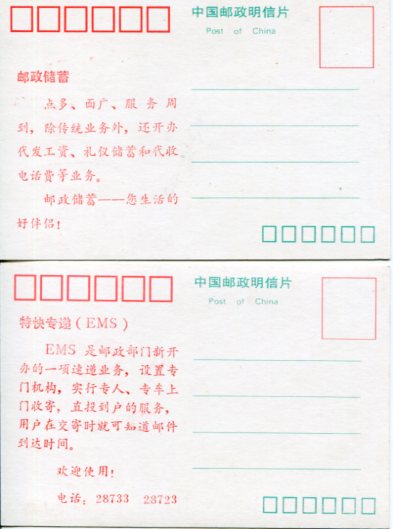 中国邮政明信片
Post of China
邮政储蓄
点多、面广、服务周
到，除传统业务外，还开办
代发工资、礼仪储蓄和代收
电话费等业务。
邮政储蓄——您生活的
好伴侣！
中国邮政明信片
Post of China
特快专递（EMS）
EMS 是邮政部门新开
办的一项速递业务，设置专
门机构，实行专人、专车上
门收寄，直投到户的服务，
用户在交寄时就可知道邮件
到达时间。
欢迎使用！
电话：28733 28723